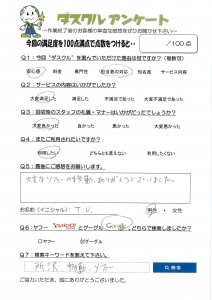 ダスクル アンケート
～作業終了後のお客様の率直な感想をぜひお聞かせ下さい～
今回の満足度を100点満点で点数をつけると・・ /100点
Q1：今回"ダスクル"を選んでいただけた理由は何ですか？（複数可）
安心感 料金 専門性 担当者の対応 知名度 サービス内容
Q2：サービスの内容はいかがでしたか？
大変満足した 満足した 不満足であった 大変不満足であった
Q3：回収時のスタッフの礼儀・マナーはいかがだったでしょうか？
大変良かった 良かった 悪かった 大変悪かった
Q4：またご利用されたいですか？
利用したい どちらとも言えない 利用したくない
Q5：最後にご感想をお願いします。
大変なソファーの移動、ありがとうございました。
お名前（イニシャル）：T.U. 男性 ・ 女性
Q6：ヤフー YAHOO! とグーグル Google、どちらで検索しましたか？
ヤフー グーグル
Q7：検索キーワードを教えて下さい。
所沢 移動 ソファー 検索
ご協力いただき、誠にありがとうございました。